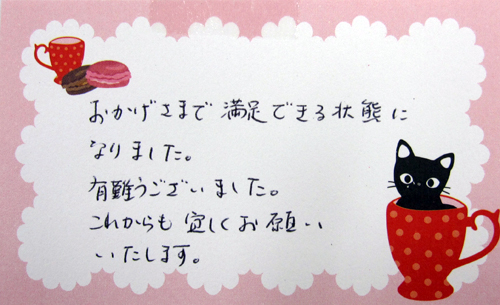 おかげさまで満足できる状態に
なりました。
有難うございました。
これからも宜しくお願い
いたします。